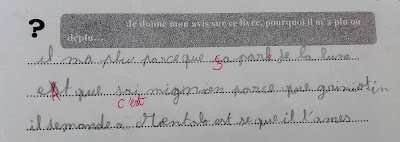 ? Je donne mon avis sur ce livre, pourquoi il m'a plu ou
déplu...
il ma plu parceque sa parle de la lune
et que soi mignion parce que
c'est
il demande a est se que il t'aimes